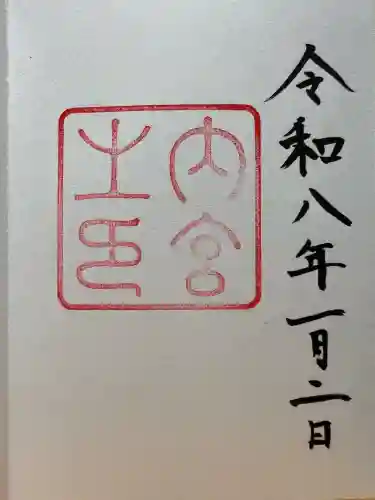 令和八年一月二日
内宮之印